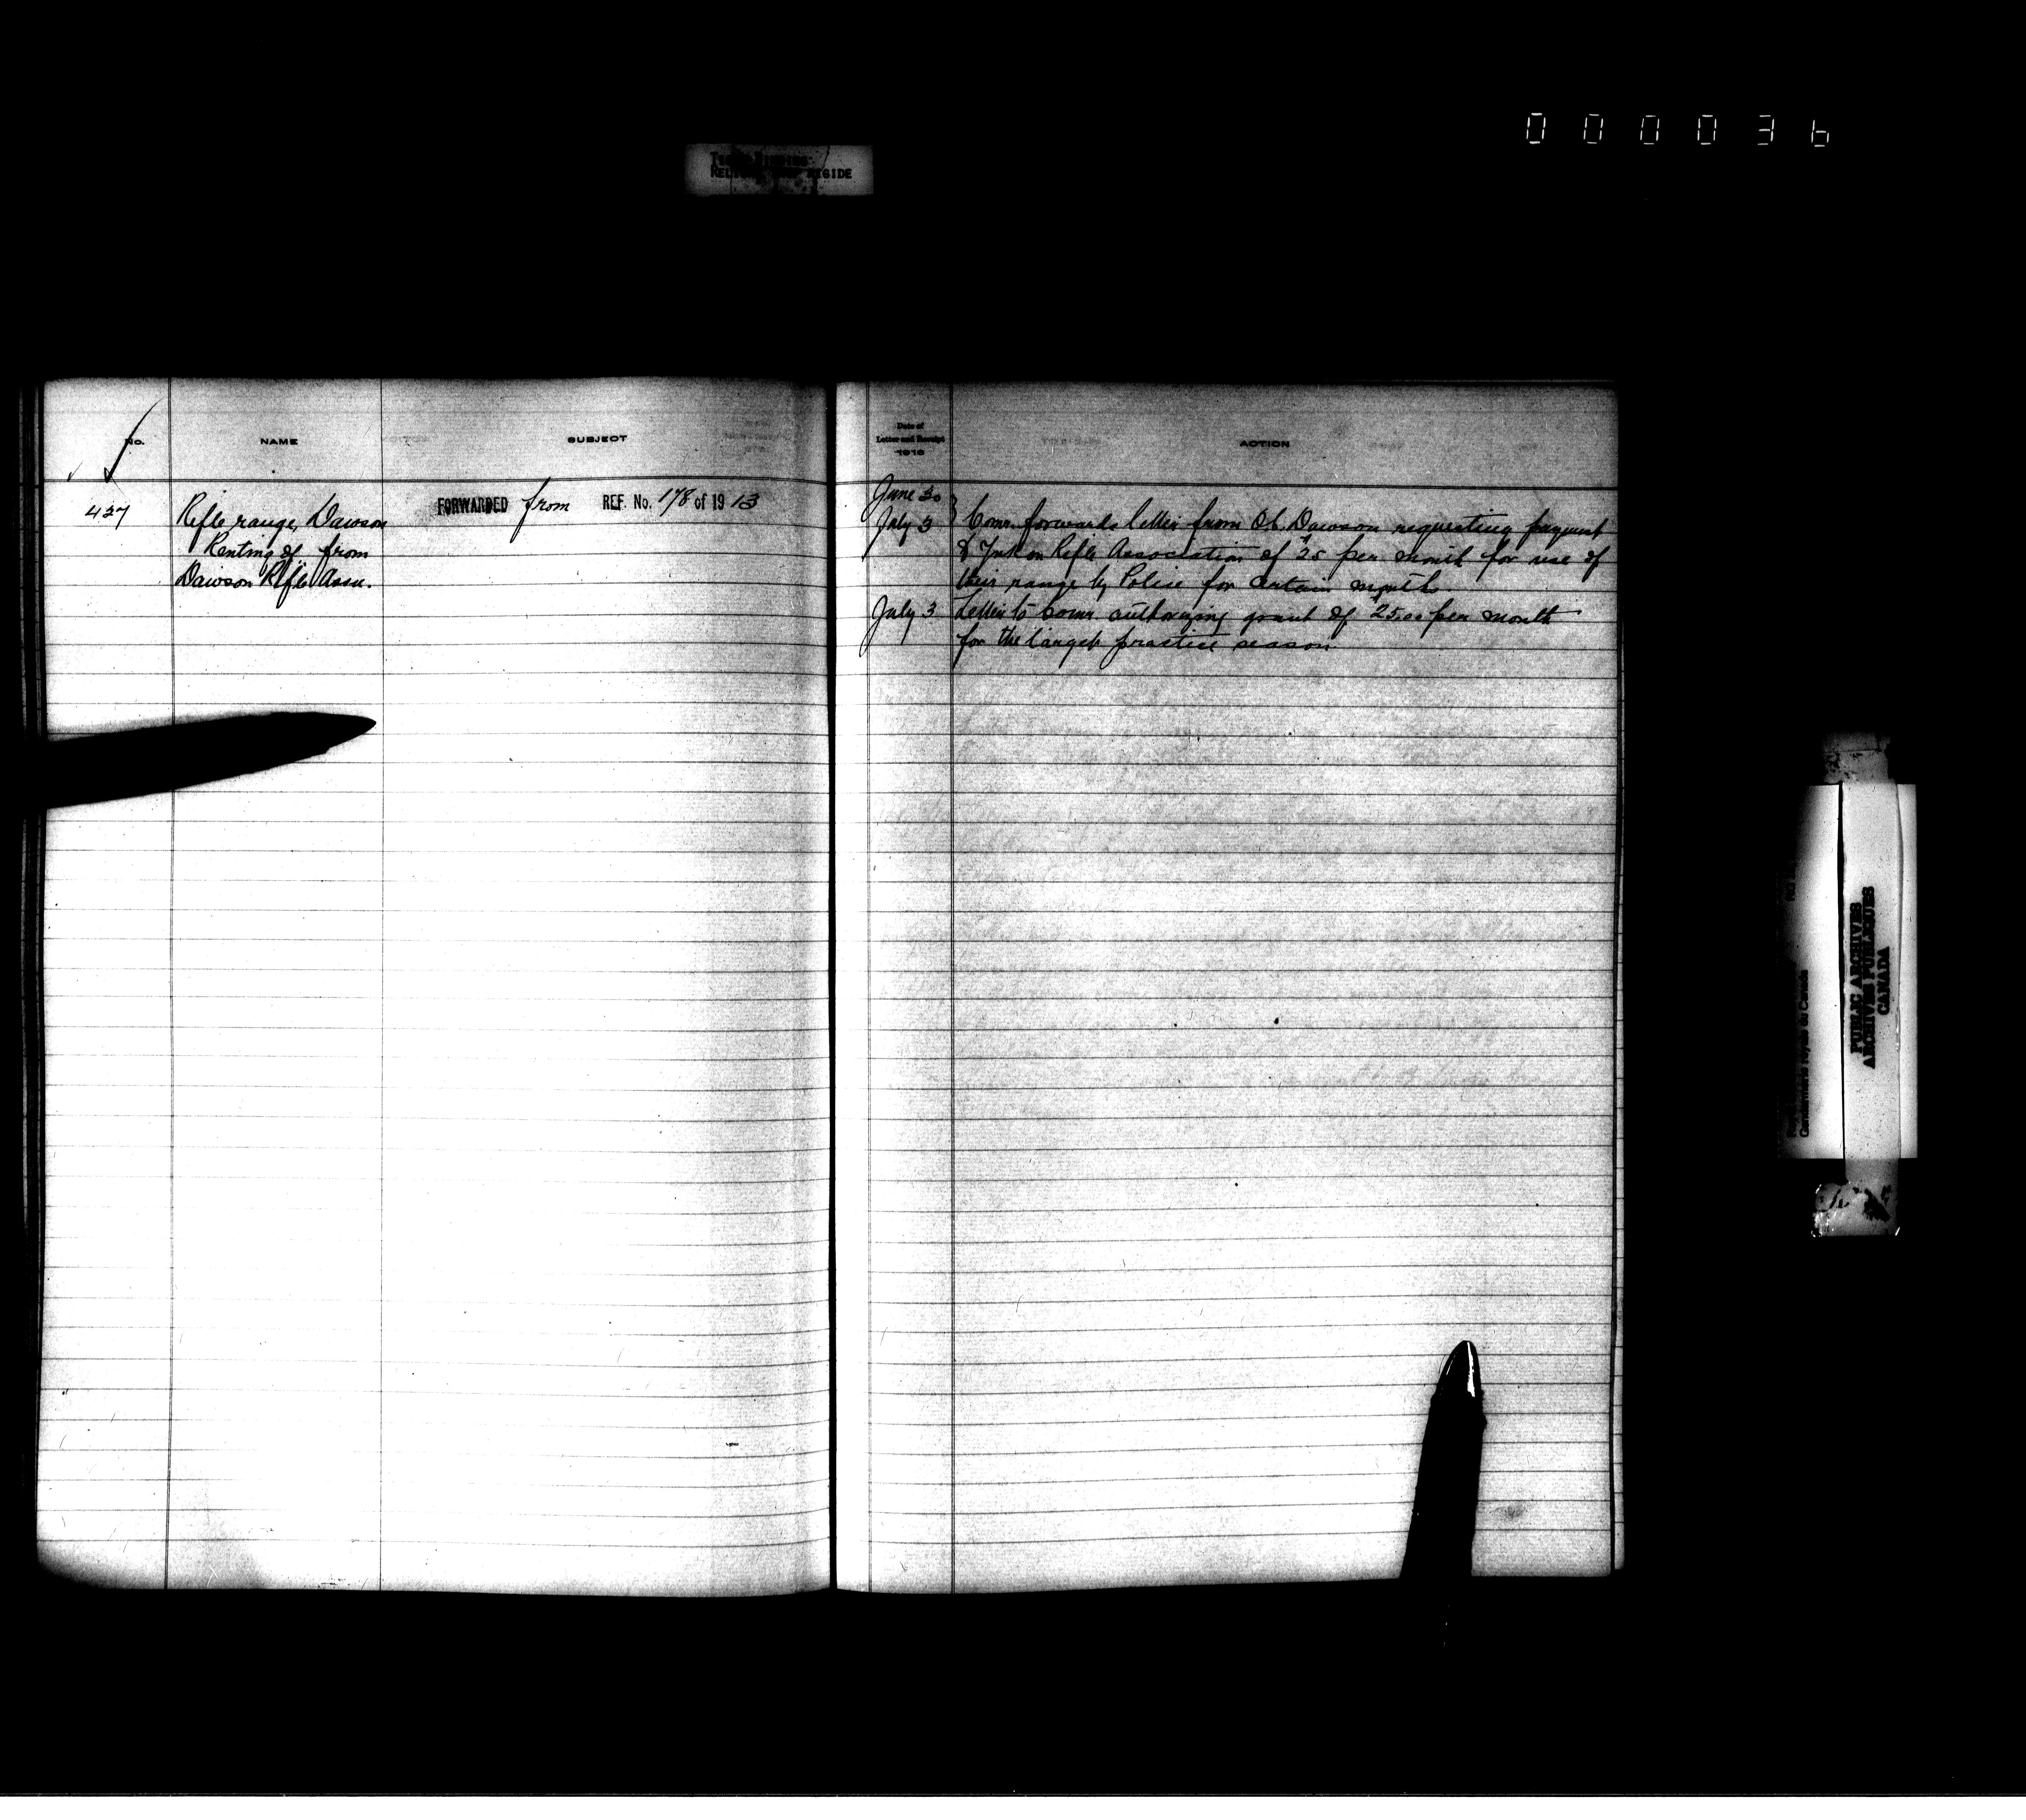 000036
No.
NAME
SUBJECT
427
Rifle range, Dawson
Renting of from
Dawson Rifle Assn.
FORWARDED from REF. No. 178 of 1913
Date of
Letter and Receipt
ACTION
June 30
July 3
Comr. forwards letter from O.C. Dawson requesting payment
to Yukon Rifle Association of $25 per month for use of
their range by Police for certain months
July 3
Letter to Comr. authorizing grant of $25.00 per month
for the target practice season.
PUBLIC ARCHIVES
ARCHIVES PUBLIQUES
CANADA